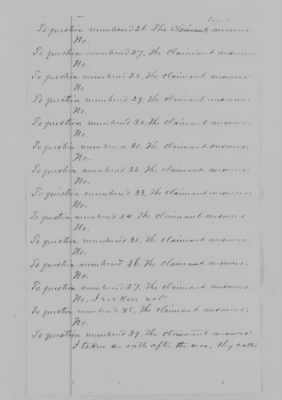 To question numbered 26. The Claimant answers.
No.
To question numbered 27. The Claimant answers.
No.
To question numbered 28. The claimant answers.
No
To question numbered 29. The claimant answers.
No.
To question numbered 30. The claimant answers.
No.
To question numbered 31. The claimant answers.
No.
To question numbered 32. The claimant answers.
No.
To question numbered 33. The claimant answers.
No.
To question numbered 34. The claimant answers.
No.
To question numbered 35. The claimant answers.
No.
To question numbered 36. The Claimant answers.
No.
To question numbered 37. The claimant answers.
No, I reckon not.
To question numbered 38. The claimant answers.
No.
To question numbered 39. The Claimant answers.
I taken an oath after the war, they